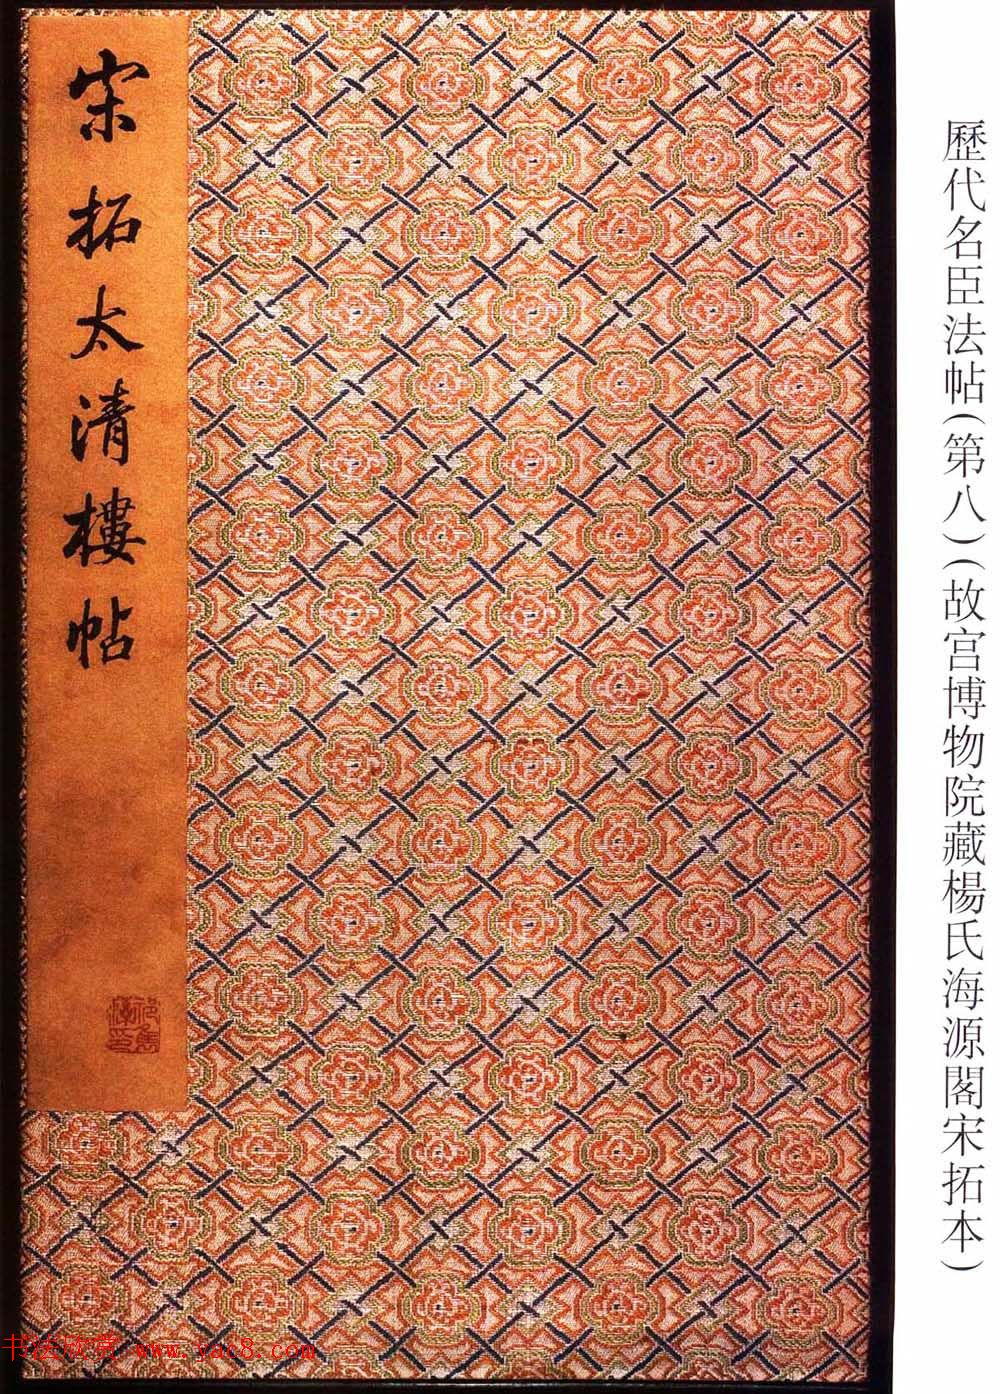 歷代名臣法帖(第八)(故宮博物院藏楊氏海源閣宋拓本)
宋拓太清樓帖
书法欣赏 www.yac8.com